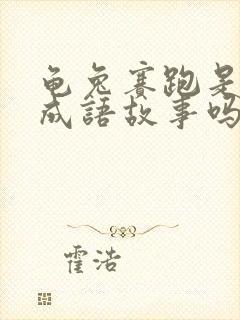 龟兔赛跑是
成語故事吗
霍浩